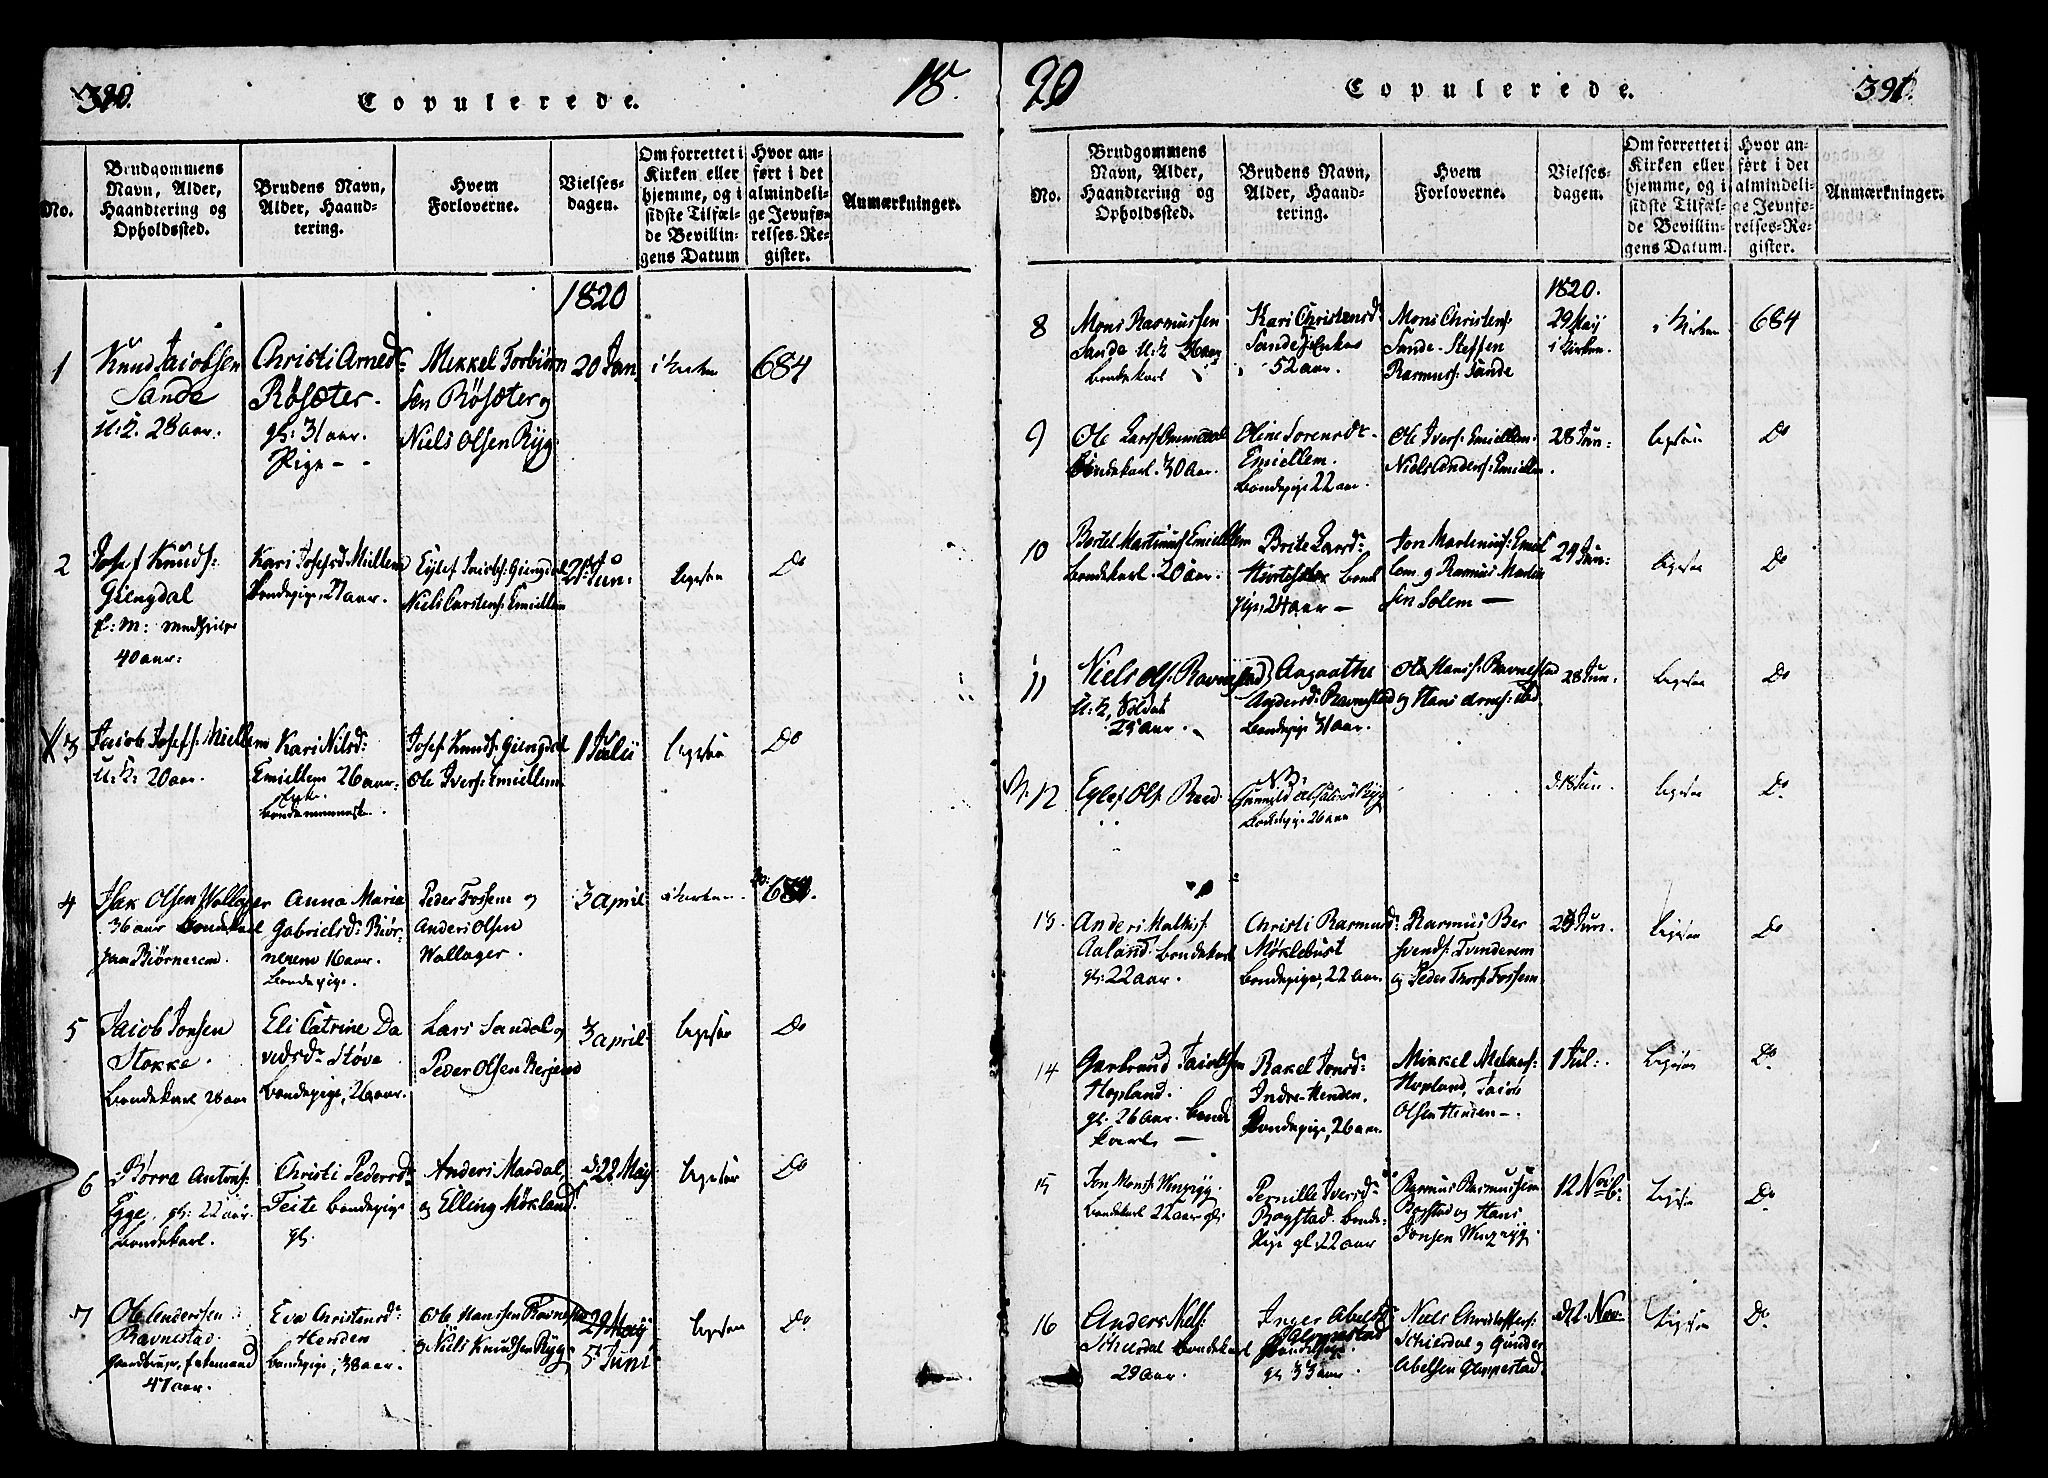 390.
Copulerede.
18
No.
Brudgommens Navn, Alder, Haandtering og Opholdssted.
Brudens Navn, Alder, Haandtering.
Hvem Forloverne.
Vielsesdagen.
Om forrettet i Kirken eller hjemme, og i sidste Tilfælde Bevillingens Datum
Hvor anført i det almindelige Jevnførelses-Register.
Anmærkninger.
1820
1
Knud Jacobsen
Sande
U: K: 28 aar:
Christi Arnedr
Røsæter.
gl: 31 aar.
Pige - -
Mekkel Torbiørn
sen Røsæter og
Niels Olsen Ryg
20 Jan
i Kirken
684
2
Josef Knuds:
Giengdal
40 aar:
Kari Josefsd Miellem
Bondepige, 27 aar.
Eylef Jacobs: Giengdal
Niels Carstens: Emiellem
Jun:
ligesaa
Do
3
Jacob Josefs: Miellem
U: K: 20 aar.
Kari Nilsd:
Emiellem 26 aar:
Enke.
Josef Knuds: Giengdal
Ole Ivers: Emiellem
1 Julii
ligesaa
Do
4
Isak Olsen Wollager
36 aar Bondekarl
paa Biørnereem
Anna Maria
Gabrielsd: Biør-
nereem 16 aar.
Bondepige.
Peder Fossem og
Anders Olsen
Wallager.
3 april
i Kirken
684.
5
Jacob Jonsen
Stokke.
Bondekarl 28 aar
Eli Catrine Da
vidsdr Støve
Bondepige, 26 aar.
Lars Sandal og
Peder Olsen
3 april
ligesaa
Do
6
Børre Antons:
Egge. gl: 22 aar.
Bondekarl.
Christi Pedersdr
Teite Bondepige
gl.
Anders Mardal
og Elling Møkland
d. 22 May
ligesaa
Do
7
Ole Andersen
Ravnestad.
47 aar.
Eva Christensdr
Hesden
Bondepige, 38 aar.
Ole Hansen Ravnestad
og Niels Knudsen Ryg
29 May
5t Juni
ligesaa
Do
20
Copulerede.
391.
No.
Brudgommens Navn, Alder, Haandtering og Opholdssted.
Brudens Navn, Alder, Haandtering.
Hvem Forloverne.
Vielsesdagen.
Om forrettet i Kirken eller hjemme, og i sidste Tilfælde Bevillingens Datum.
Hvor anført i det almindelige Jevnførelses-Register.
Anmærkninger.
1820.
8
Mons Rasmussen
Sande U: K 36 aar
Bondekarl
Kari Christensd:
Sande Enke
52 aar.
Mons Christens:
Sande. Steffen
Rasmus: Sande
29 May
i Kirken.
i Kirken
684
9
Ole Lars:
Bondekarl. 30 Aar.
Oline Sorensdr
Emiellem.
Bondepige 22 aar
Ole Ivers: Emiellem.
Niels Anders: Emiellem
28 Jun:
ligesaa
Do
10
Bertel Martinus: Emiellem
Bondekarl. 20 aar.
Brite Larsd:
Bond
pige, 24 aar —
Jon Martinus: Emiel
lem og Rasmus Martin
sen Solem —
29 Jun:
ligesaa
Do
11
Niels Ols: Ravnestad
U: K, Soldat
25 aar.
Aagaathe
Andersdr Ravnestad
Bondepige 31 aar.
Ole Hans: Ravnestad
og Hans Arnes: ibid.
28 Jun.
ligesaa
Do
12
Eylef Ols: Reed
NB.
Bondepige 26 aar
d. 18 Jun.
ligesaa
Do
13.
Anders Mathis:
Aaland. Bondekarl
gl: 22 aar.
Christi Rasmusd:
Møklebust
Bondepige, 22 aar.
Rasmus Ber
svends: Tvinderem
og Peder Thors: Fossem
Jun.
ligesaa
Do
14
Garbrand Jacobsen
Hopland.
gl. 26 aar. Bonde
karl —
Rakel Jonsd:
Indre-Henden.
Bondepige, 26 aar.
Mikkel Melkers:
Hopland, Jacob
Olsen Henden —.
1 Jul:
ligesaa
Do
15
Jon Mons:
Bondekarl 22 aar gl:
Pernille Iversdr
Rogstad. Bonde-
pige gl. 22 aar
Rasmus Rasmussen
Rogstad og Hans
Jonsen
12 Novb:
ligesaa
Do
16
Anders Niels:
Schierdal Bondekarl
29 aar.
Inger Abelsd
Gloppestad
Bondepige.
gl 33 aar
Niels Christoffers:
Schierdal og Gunder
Abelsen Gloppestad.
Nov:
ligesaa
Do